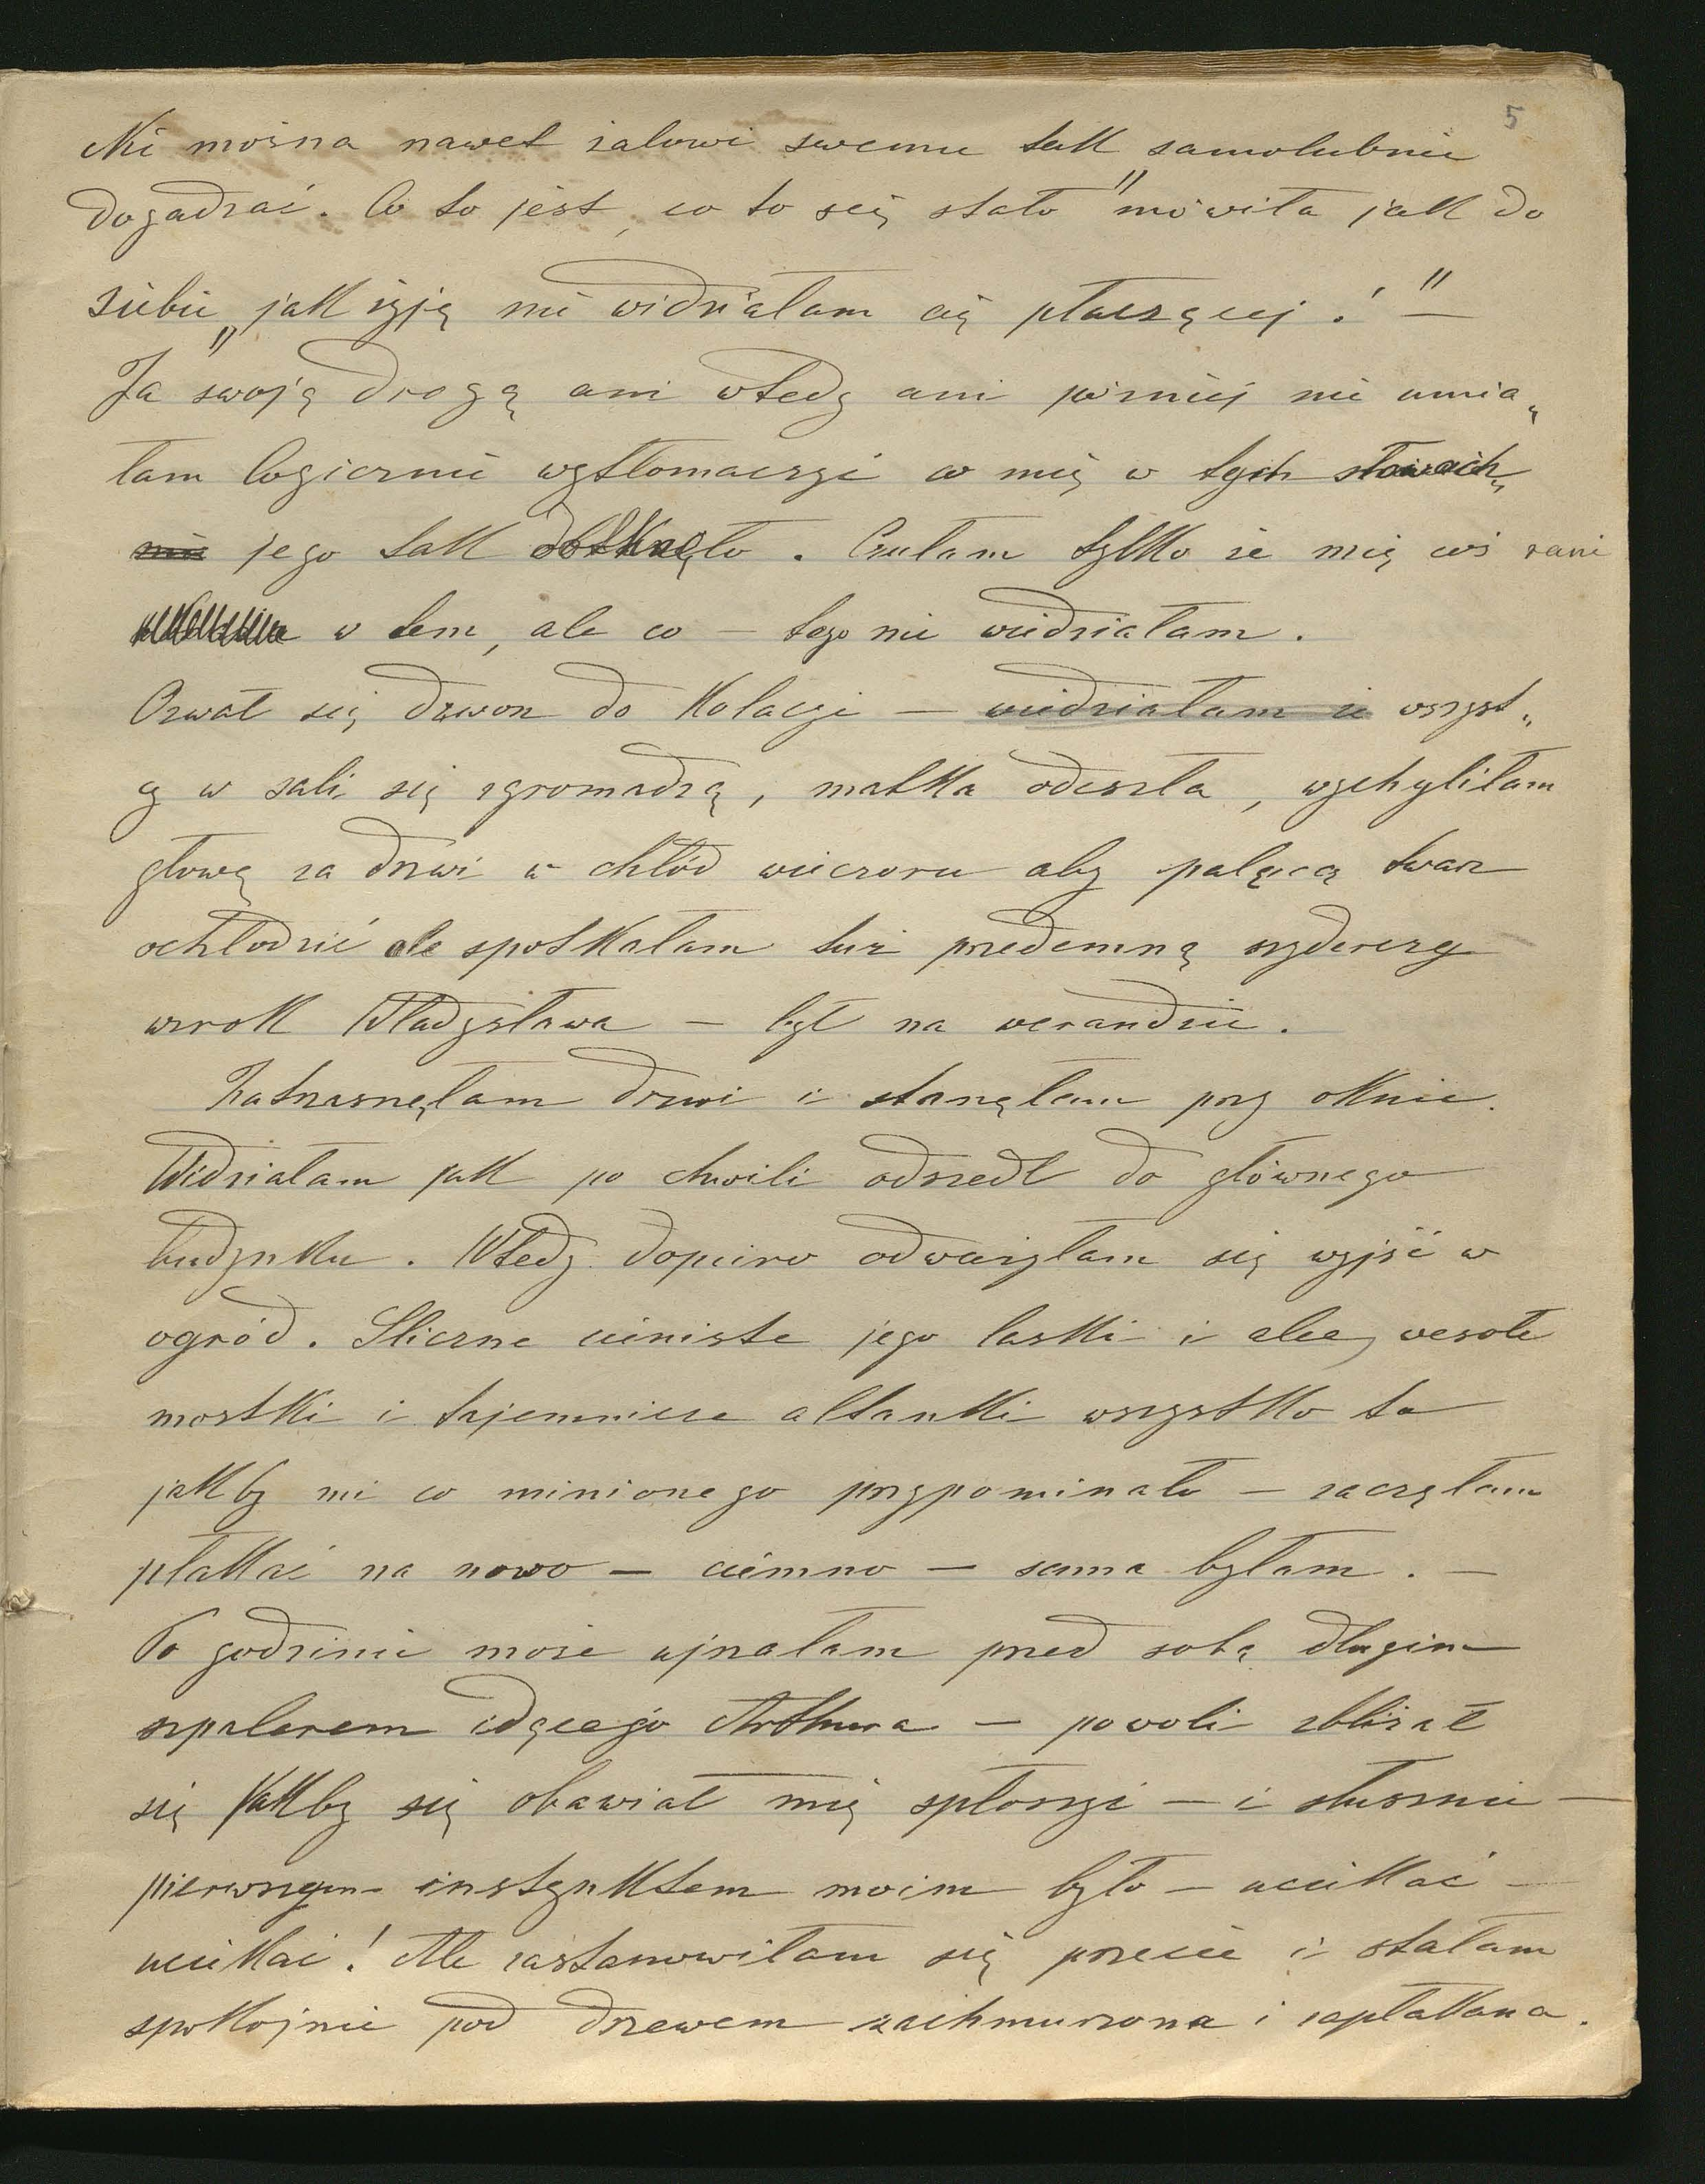 5
Nie można nawet żalowi swemu tak samolubnie
dogadzać. Co to jest, co to się stało" mówiła jak do
siebie „jak żyję nie widziałam cię płaczącej!" —
Ja swoją drogą ani wtedy ani później nie umia„
łam logicznie wytłomaczyć co mię w tych słowach
nie jego tak dotknęło. Czułam tylko że mię coś rani
w tem, ale co — tego nie wiedziałam.
Ozwał się dzwon do kolacyi — wiedziałam że wszyst„
cy w sali się zgromadzą, matka odeszła, wychyliłam
głowę za drzwi w chłód wieczoru aby palącą twarz
ochłodzić ale spotkałam tuż przedemną szyderczy
wzrok Władysława — był na werandzie.
Zatrzasnęłam drzwi i stanęłam przy oknie.
Widziałam jak po chwili odszedł do głównego
budynku. Wtedy dopiero odważyłam się wyjść w
ogród. Śliczne cieniste jego laski i aleje, wesołe
mostki i tajemnicze altanki wszystko to
jakby mi co minionego przypominało — zaczęłam
płakać na nowo — ciemno — sama byłam. —
Po godzinie może ujrzałam przed sobą długim
szpalerem idącego Arthura — powoli zbliżał
się jakby się obawiał mię spłoszyć — i słusznie —
pierwszym instynktem moim było — uciekać —
uciekać! Ale zastanowiłam się przecie i stałam
spokojnie pod drzewem zachmurzona i zapłakana.